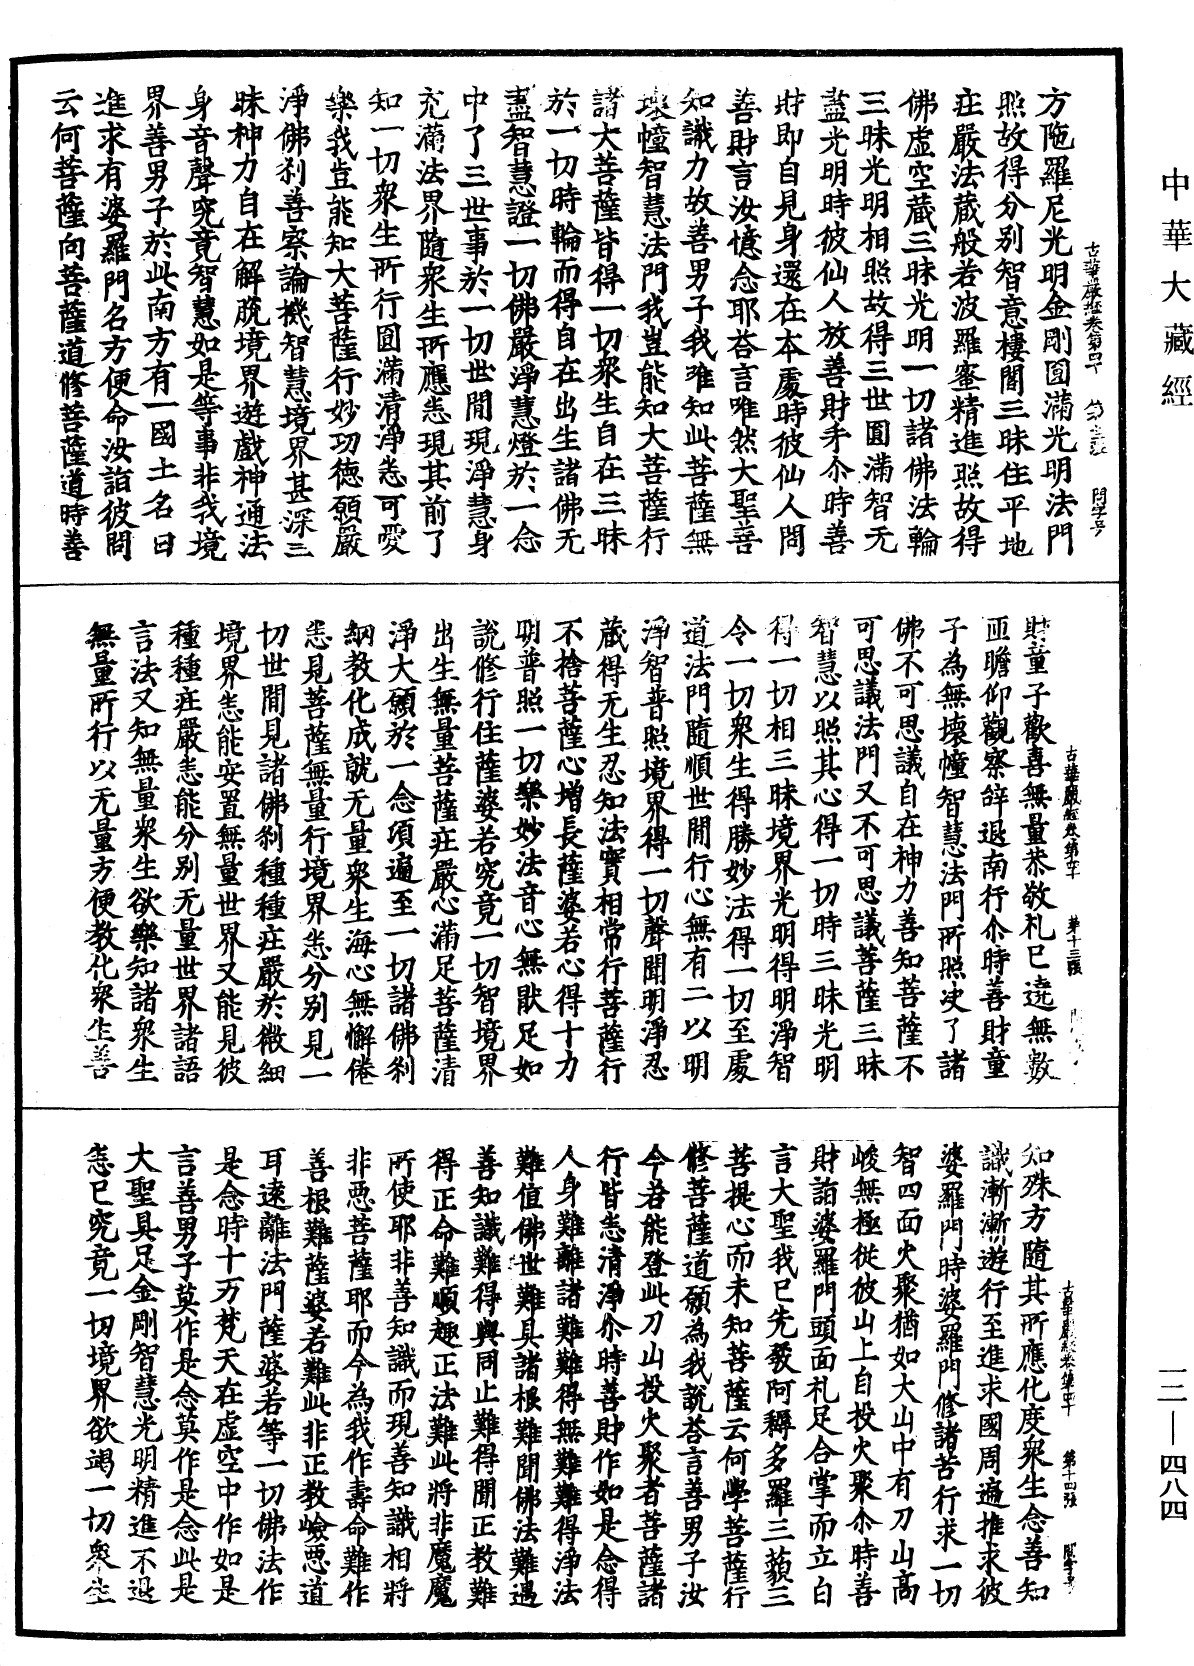 中華大藏經
一二—四八四
方陁羅尼光明金剛圓滿光明法門
照故得分別智意樓閣三昧住平地
莊嚴法蔵般若波羅蜜精進照故得
佛虚空蔵三昧光明一切諸佛法輪
三昧光明相照故得三世圓滿智无
盡光明時彼仙人放善財手尒時善
財即自見身還在本處時彼仙人問
善財言汝憶念耶荅言唯然大聖善
知識力故善男子我唯知此菩薩無
壞幢智慧法門我豈能知大菩薩行
諸大菩薩皆得一切衆生自在三昧
於一切時輪而得自在出生諸佛无
盡智慧證一切佛嚴淨慧燈於一念
中了三世事於一切世間現淨慧身
充滿法界隨衆生所應悉現其前了
知一切衆生所行圓滿清淨悉可愛
樂我豈能知大菩薩行妙功德願嚴
淨佛刹善察論機智慧境界甚深三
昧神力自在解脫境界遊戲神通法
身音聲究竟智慧如是等事非我境
界善男子於此南方有一國土名曰
進求有婆羅門名方便命汝詣彼問
云何菩薩向菩薩道修菩薩道時善
古華嚴經卷第四十
第十三張
財童子歡喜無量恭敬礼已遶無數
匝瞻仰觀察辝退南行尒時善財童
子為無壞幢智慧法門所照决了諸
佛不可思議自在神力善知菩薩不
可思議法門又不可思議菩薩三昧
智慧以照其心得一切時三昧光明
得一切相三昧境界光明得明淨智
令一切衆生得勝妙法得一切至處
道法門隨順世間行心無有二以明
淨智普照境界得一切聲聞明淨忍
蔵得无生忍知法實相常行菩薩行
不捨菩薩心增長薩婆若心得十力
明普照一切樂妙法音心無猒足如
說修行住薩婆若究竟一切智境界
出生無量菩薩莊嚴心滿足菩薩清
淨大願於一念頃遍至一切諸佛刹
網教化成就无量衆生海心無懈倦
悉見菩薩無量行境界悉分別見一
切世間見諸佛刹種種莊嚴於微細
境界悉能安置無量世界又能見彼
種種莊嚴悉能分別无量世界諸語
言法又知無量衆生欲樂知諸衆生
無量所行以无量方便教化衆生善
古華嚴經卷第四十
第十四張
知殊方隨其所應化度衆生念善知
識漸漸遊行至進求國周遍推求彼
婆羅門時婆羅門修諸苦行求一切
智四面火聚猶如大山中有刀山高
峻無極從彼山上自投火聚尒時善
財詣婆羅門頭面礼足合掌而立白
言大聖我已先發阿耨多羅三藐三
菩提心而未知菩薩云何學菩薩行
修菩薩道願為我說荅言善男子汝
今若能登此刀山投火聚者菩薩諸
行皆悉清淨尒時善財作如是念得
人身難離諸難難得無難難得淨法
難值佛世難具諸根難聞佛法難遇
善知識難得與同止難得聞正教難
得正命難順趣正法難此將非魔魔
所使耶非善知識而現善知識相將
非惡菩薩耶而今為我作壽命難作
善根難薩婆若難此非正教嶮惡道
耳遠離法門薩婆若等一切佛法作
是念時十万梵天在虛空中作如是
言善男子莫作是念莫作是念此是
大聖具足金剛智慧光明精進不退
悉已究竟一切境界欲竭一切衆生